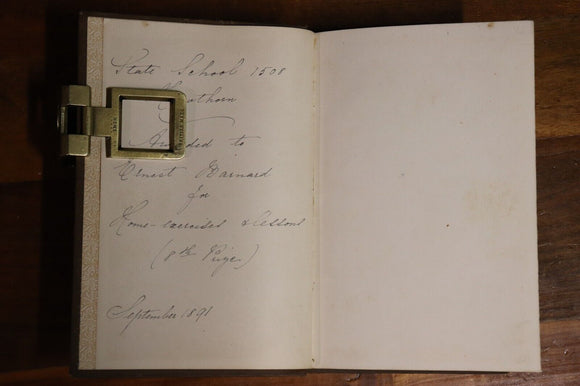 State School 1508
Hawthorn
Awarded to
Ernest Barnard
for
Home-exercises & lessons
(8th Prize)
September 1891